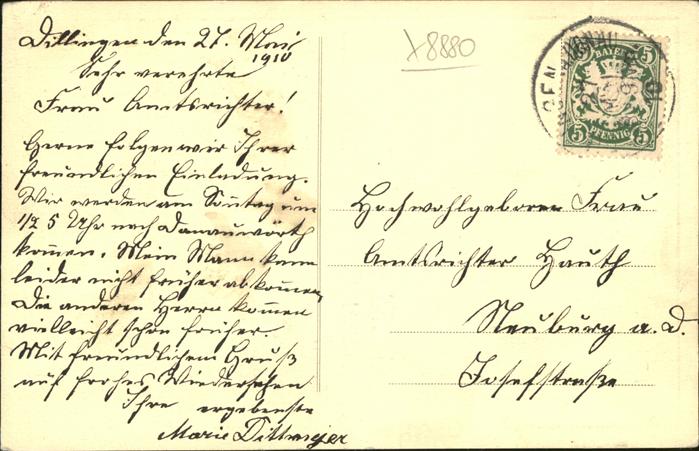 Dillingen den 27. Mai
1910
Sehr verehrte
Frau Amtsrichter!
Gerne folgen wir Ihrer
freundlichen Einladung.
Wir werden am Sonntag um
1/2 5 Uhr nach Donauwörth
kommen. Mein Mann kann
leider nicht früher abkommen,
Die anderen Herrn kommen
vielleicht schon früher.
Mit freundlichem Gruß
auf frohes Wiedersehen
Ihre ergebenste
Marie Dittmeyer
x8880
BAYERN
5 5
5 5
PFENNIG
Hochwohlgeboren Frau
Amtsrichter Hauth
Neuburg a. D.
Josefstraße